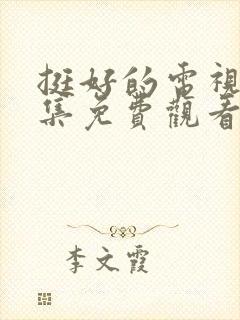 挺好的電視
集免費觀看
李文霞